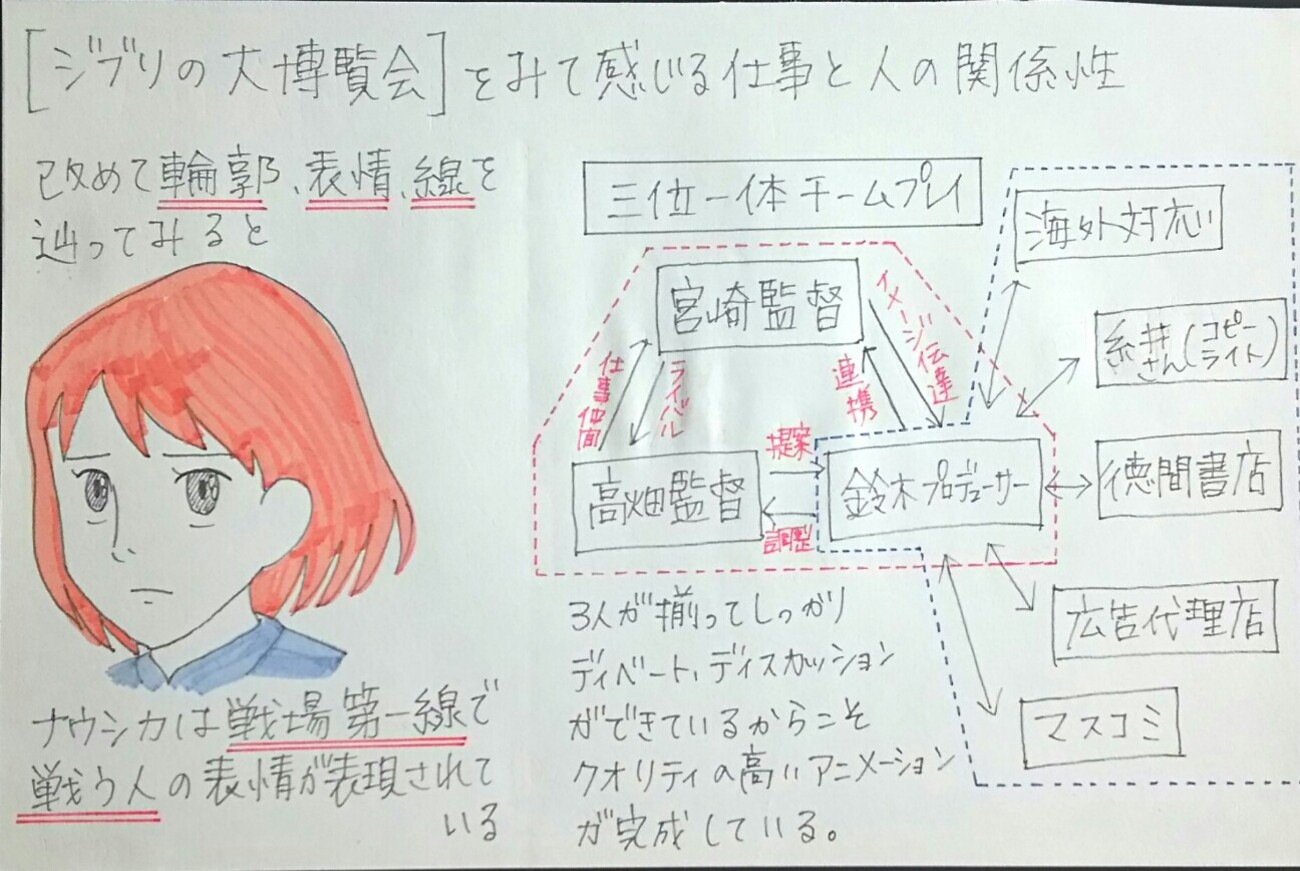 [ジブリの大博覧会]をみて感じる仕事と人の関係性
改めて輪郭、表情、線を
辿ってみると
ナウシカは戦場第一線で
戦う人の表情が表現されて
いる
三位一体チームプレイ
宮崎監督
仕事仲間
ライバル
連携
イメージ伝達
高畑監督
提案
調整
鈴木プロデューサー
海外対応
糸井さん(コピーライト)
徳間書店
広告代理店
マスコミ
3人が揃ってしっかり
ディベート、ディスカッション
ができているからこそ
クオリティの高いアニメーション
が完成している。